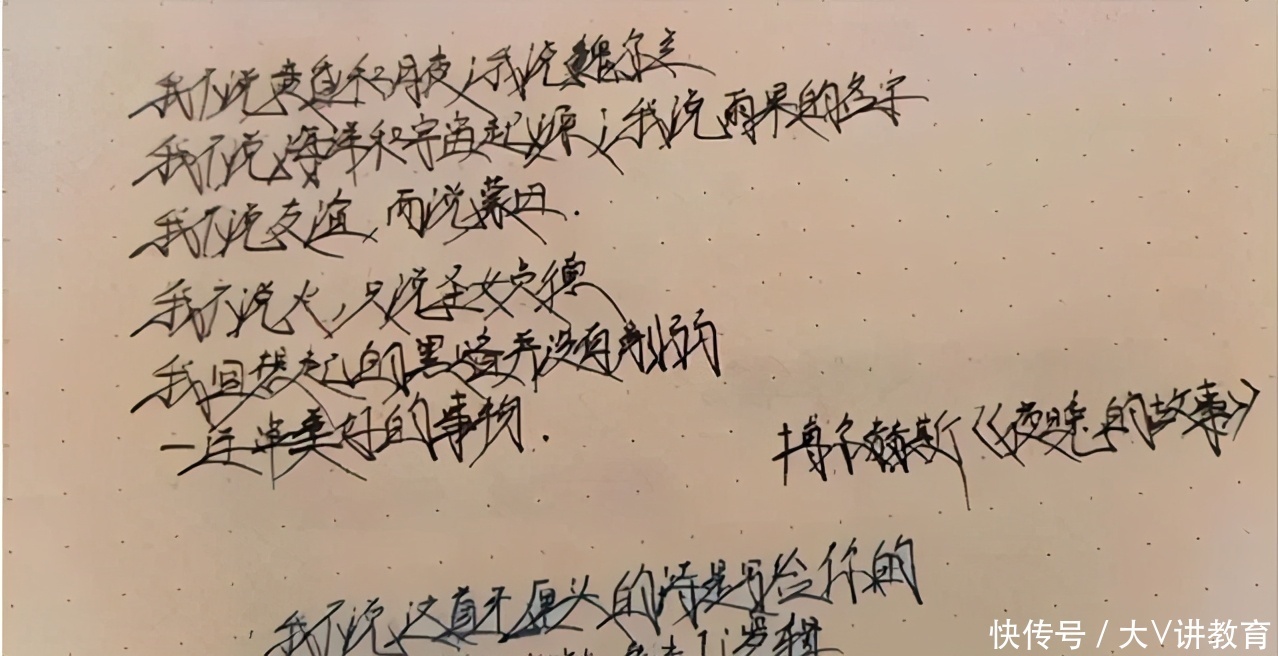 我不说黄昏和月夜;我说魏尔兰
我不说海洋和宇宙起源;我说雨果的名字
我不说友谊,而说蒙田.
我不说火,只说圣女贞德
我回想起的黑暗并没有削弱
一连串美好的事物.
博尔赫斯《夜晚的故事》
我不说这真无厘头的诗是写给你的
快传号/大V讲教育